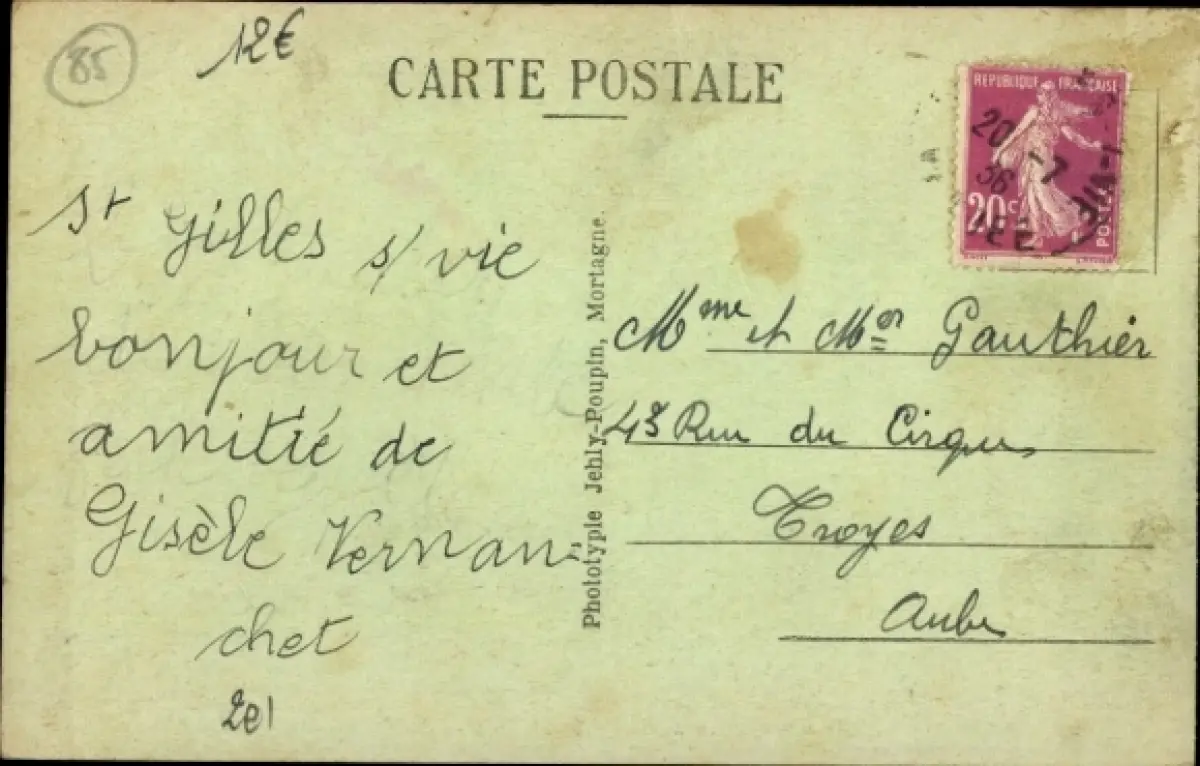 85
12€
CARTE POSTALE
REPUBLIQUE FRANÇAISE
20c
POSTES
20 -7
36
St Gilles s/ vie
bonjour et
amitié de
Gisèle Vernan
chet
Phototypie Jehly-Poupin, Mortagne.
Mme et Mor Gauthier
43 Rue du Cirque
Troyes
Aube